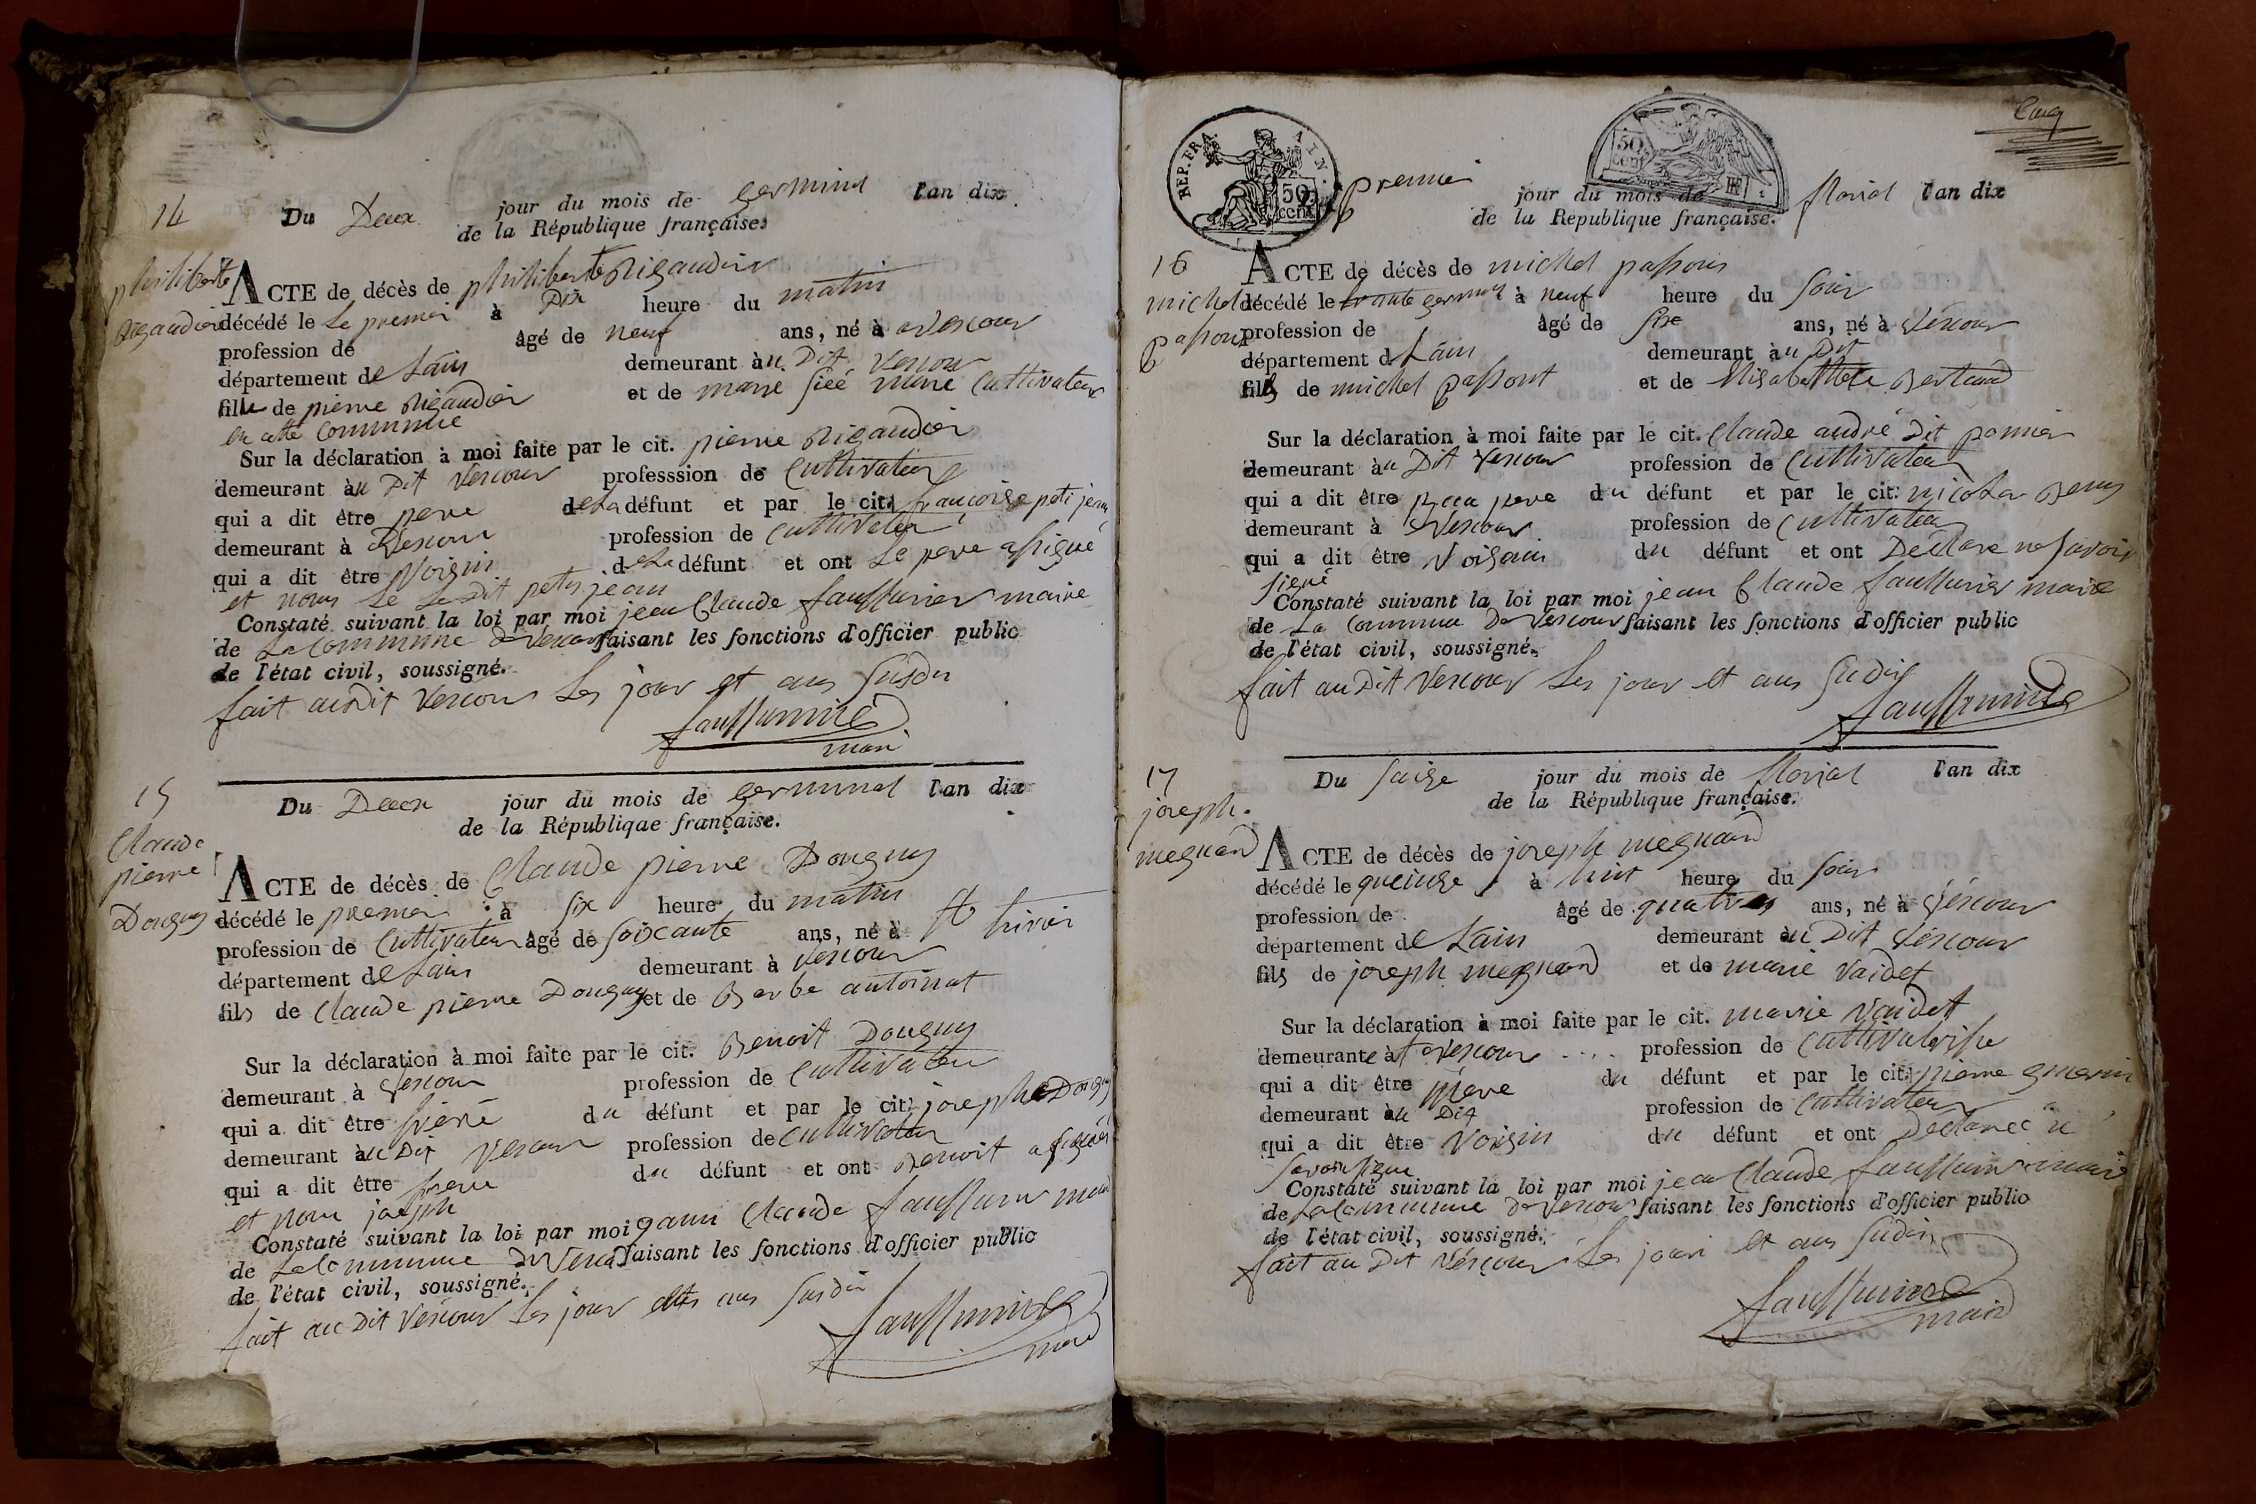 14
Du Deux jour du mois de germinal l'an dix
de la République française.
philiberte
Rigaudier
ACTE de décès de philiberte Rigaudier
décédé le Le premier à Dix heure du matin
profession de âgé de neuf ans, né à a vescour
département de Lain demeurant àu Dit vescour
fille de pierre Rigaudier et de marie fiéé mere Cultivateur
en cette commune
Sur la déclaration à moi faite par le cit. pierre Rigaudier
demeurant àu Dit vescour professsion de Cultivateur
qui a dit être pere de La défunt et par le cit. francoise petijean
demeurant à vescour profession de cultivateur
qui a dit être voisin de La défunt et ont Le pere assigné
et nom Le Le Dit petijean
Constaté suivant la loi par moi jean Claude fausturier maire
de La Commune De vescour faisant les fonctions d'officier public
de l'état civil, soussigné.
fait audit vescour Les jour et ans Susdis
maire
15
Du Deux jour du mois de germinal l'an dix
de la Républiqae française.
Claude
pierre
Douguy
ACTE de décès de Claude pierre Douguy
décédé le premier à six heure du matin
profession de Cultivateur âgé de soixcante ans, né à St trivier
département de Lain demeurant à vescour
fils de Claude pierre Douguy et de Barbe antoinat
Sur la déclaration à moi faite par le cit. Benoit Douguy
demeurant à vescour profession de Cultivateur
qui a dit être frere du défunt et par le cit. joseph Douguy
demeurant àu Dit vescour profession de cultivateur
qui a dit être frere du défunt et ont Benoit a signé
et nom joseph
Constaté suivant la loi par moi Claude
de La Commune De faisant les fonctions d'officier public
de l'état civil, soussigné.
fait au Dit vescour Les jour et ans Susdis
maire
REP. FRA. AIN.
50 cent.
50 cent.
Cinq
premier jour du mois de florial l'an dix
de la Republique française.
16
michel
passout
ACTE de décès de michel passout
décédé le trante germinal à neuf heure du soir
profession de âgé de six ans, né à vescour
département de Lain demeurant àu Dit
fils de michel passout et de Elisabethe Bertaud
Sur la déclaration à moi faite par le cit. Claude andré dit pannier
demeurant àu Dit vescour profession de Cultivateur
qui a dit être Beau pere du défunt et par le cit: nicolas Beny
demeurant à vescour profession de Cultivateur
qui a dit être voisain du défunt et ont Declare ne savoir
signé
Constaté suivant la loi par moi jean Claude fausturier maire
de La Commune De vescour faisant les fonctions d'officier public
de l'état civil, soussigné.
fait au Dit vescour Les jour et ans Sudis
17
Du saize jour du mois de florial l'an dix
de la République française.
joseph
megnard
ACTE de décès de joseph megnard
décédé le queinze à huit heure du soir
profession de âgé de quatres ans, né à vescour
département de Lain demeurant àu Dit vescour
fils de joseph megnard et de marie vaidet
Sur la déclaration à moi faite par le cit. marie vaidet
demeurante à vescour profession de Cultivatrisse
qui a dit être mere du défunt et par le cit. pierre guerin
demeurant àu Dit profession de Cultivateur
qui a dit être voisin du défunt et ont Declaree ne
savoir signe
Constaté suivant la loi par moi jean Claude fausturier maire
de La Commune De vescour faisant les fonctions d'officier public
de l'état civil, soussigné.
fait au Dit vescour Les jour et ans Sudis
maire